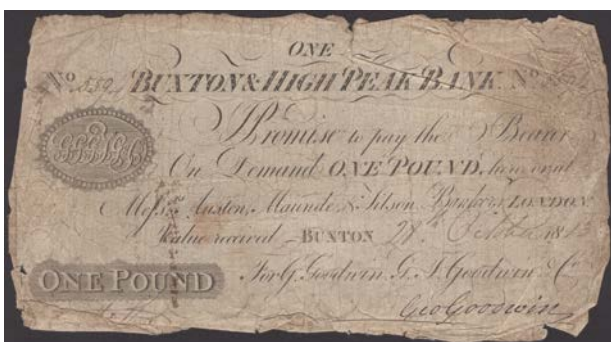 ONE
No BUXTON & HIGH PEAK BANK No
I Promise to pay the Bearer
On Demand ONE POUND, here or at
Messrs. Austen, Maunde, & Tilson, Bankers, LONDON
Value received BUXTON 28th October 1813
ONE POUND For G. Goodwin, G. J. Goodwin & Co
Geo Goodwin